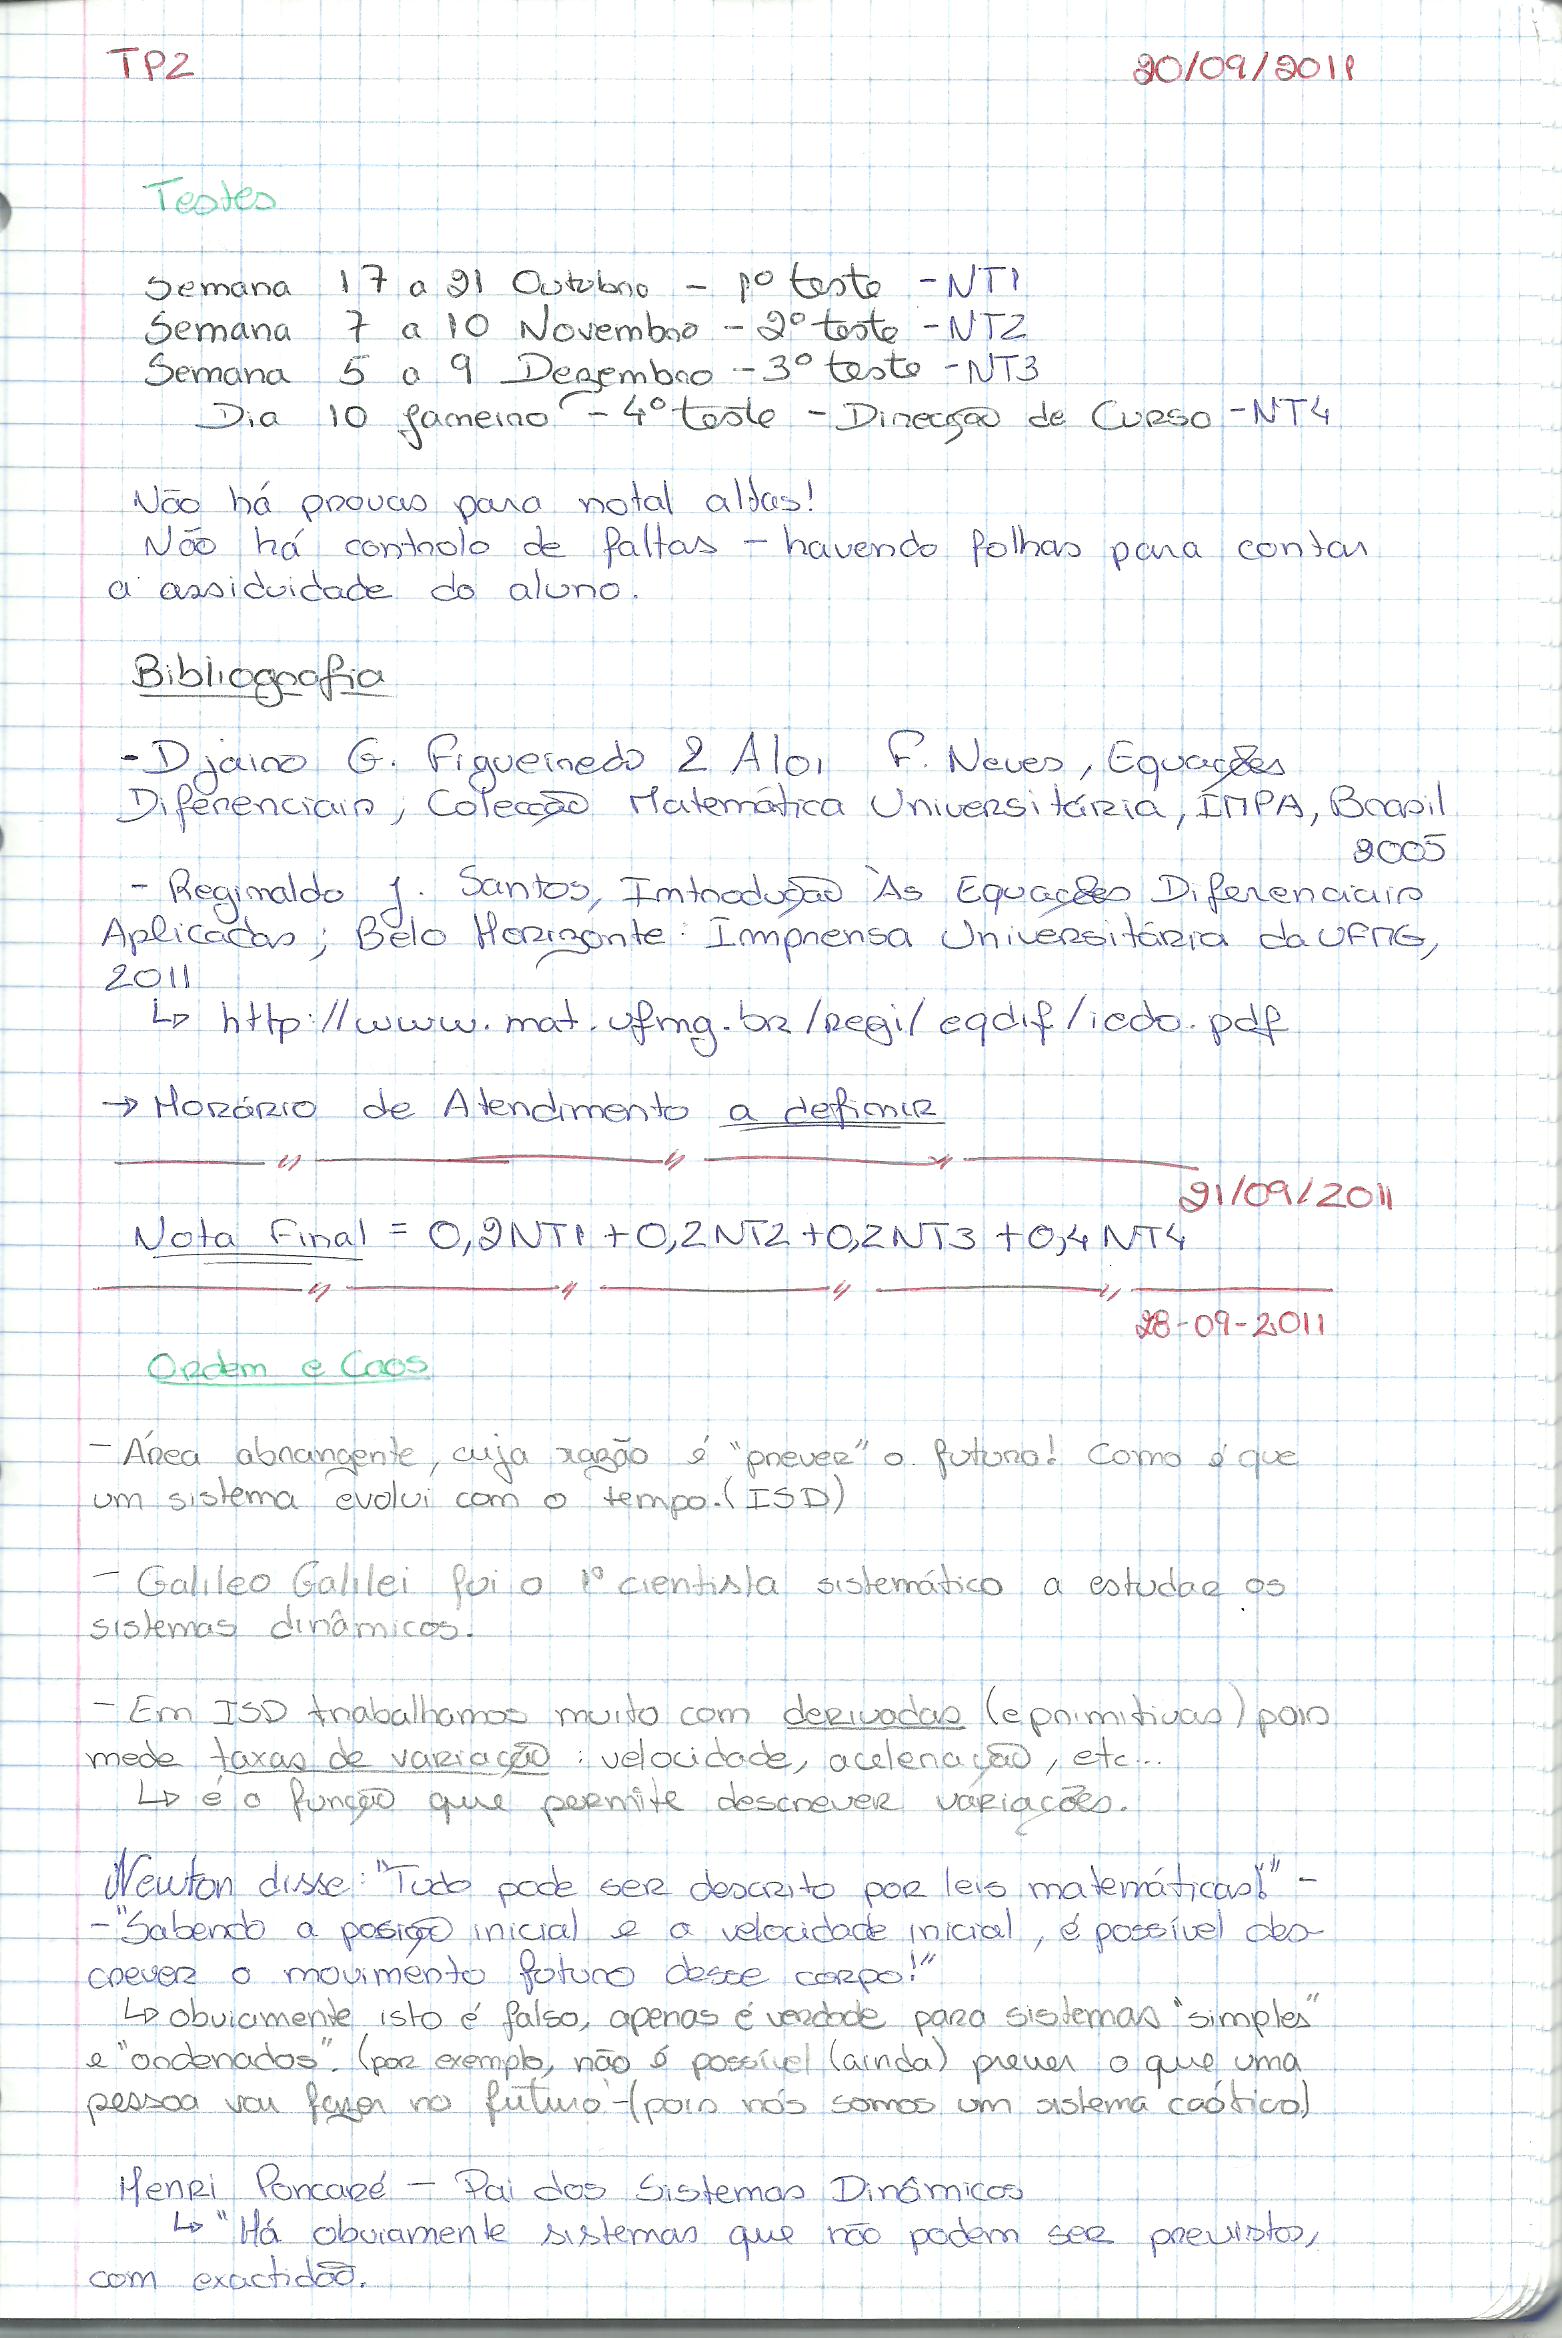 TP2 20/09/2011
Testes
Semana 17 a 21 Outubro - 1º teste - NT1
Semana 7 a 10 Novembro - 2º teste - NT2
Semana 5 a 9 Dezembro - 3º teste - NT3
Dia 10 Janeiro - 4º teste - Direcção de Curso - NT4
Não há provas para notal altas!
Não há controlo de faltas - havendo folhas para contar
a assiduidade do aluno.
Bibliografia
- Djairo G. Figueiredo & Aloi F. Neves, Equações
Diferenciais, Colecção Matemática Universitária, IMPA, Brasil
2005
- Reginaldo J. Santos, Introdução Às Equações Diferenciais
Aplicadas; Belo Horizonte: Imprensa Universitária da UFMG,
2011
↳ http://www.mat.ufmg.br/regi/eqdif/iedo.pdf
→ Horário de Atendimento a definir
21/09/2011
Nota Final = 0,2NT1 + 0,2NT2 + 0,2NT3 + 0,4NT4
28-09-2011
Ordem e Caos
- Área abrangente, cuja razão é "prever" o futuro! Como é que
um sistema evolui com o tempo. (ISD)
- Galileo Galilei foi o 1º cientista sistemático a estudar os
sistemas dinâmicos.
- Em ISD trabalhamos muito com derivadas (e primitivas) pois
mede taxas de variação: velocidade, aceleração, etc...
↳ é a função que permite descrever variações.
Newton disse: "Tudo pode ser descrito por leis matemáticas!" -
- "Sabendo a posição inicial e a velocidade inicial, é possível des-
crever o movimento futuro desse corpo!"
↳ obviamente isto é falso, apenas é verdade para sistemas "simples"
e "ordenados". (por exemplo, não é possível (ainda) prever o que uma
pessoa vai fazer no futuro - (pois nós somos um sistema caótico)
Henri Poncaré - Pai dos Sistemas Dinâmicos
↳ "Há obviamente sistemas que não podem ser previstos,
com exactidão.